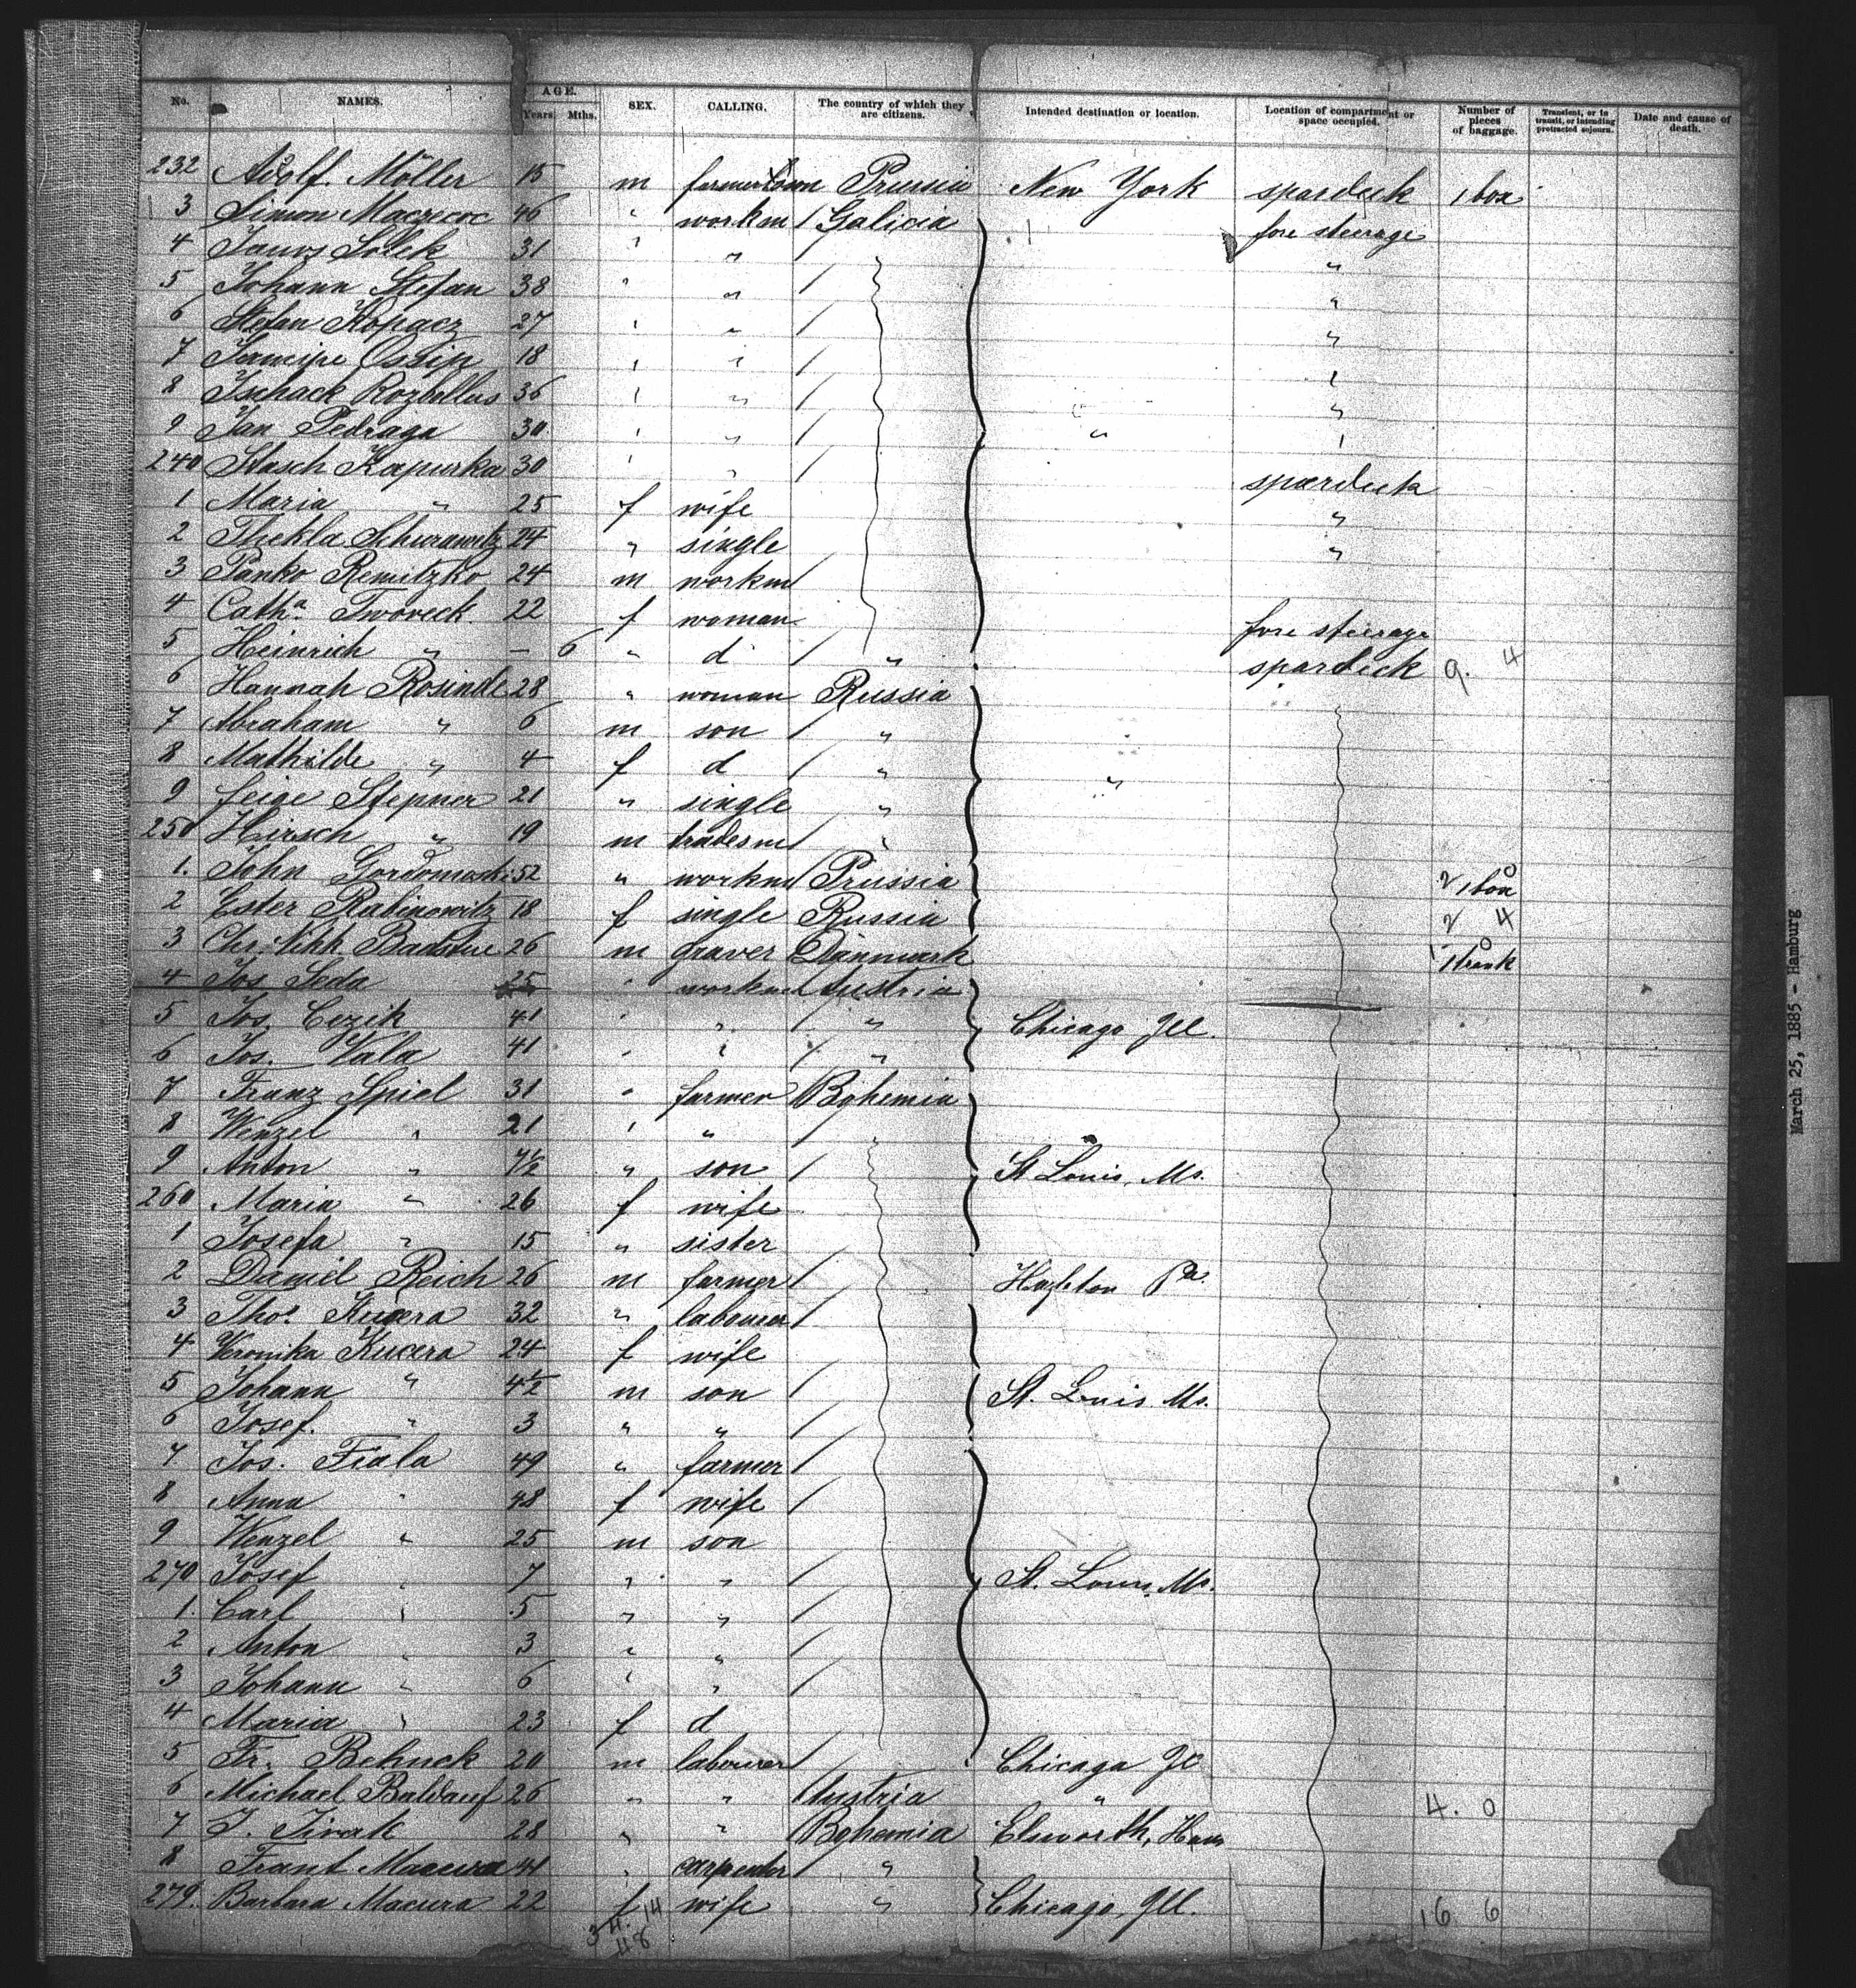 No. NAMES. AGE. Years. Mths. SEX. CALLING. The country of which they are citizens. Intended destination or location. Location of compartment or space occupied. Number of pieces of baggage. Transient, or in transit, or intending protracted sojourn. Date and cause of death.
232 Adolf Möller 15 m Prussia New York spardeck 1 box
3 Simon 46 " workm Galicia fore steerage
4 31 " " "
5 Johann Stefan 38 " " "
6 Stefan Kopacz 27 " " "
7 Ossip 18 " " "
8 36 " " "
9 Jan Pedraga 30 " " " "
240 Stasch Kapurka 30 " " spardeck
1 Maria " 25 f wife "
2 Thekla 24 " single "
3 Panko Remitzko 24 m workm
4 Catha. Tworeck 22 f woman fore steerage
5 Heinrich " – 6 " d " spardeck 9. 4
6 Hannah Rosinde 28 " woman Russia
7 Abraham " 6 m son "
8 Mathilde " 4 f d "
9 Feige Stepner 21 " single " "
250 Hirsch " 19 m tradesm "
1. John 52 " workm Prussia 2 1 box 0
2 Ester Rabinowitz 18 f single Russia 2 4
3 Chr. 26 m graver Danmark 1 0
4 Jos Seda 25 " workm Austria
5 Jos. Cezik 41 " " " Chicago Ill.
6 Jos. Vala 41 " " "
7 Franz Spiel 31 " farmer Bohemia
8 Wenzel " 21 " "
9 Anton " " son St Louis, Mo.
260 Maria " 26 f wife
1 Josefa " 15 " sister
2 Daniel Reich 26 m farmer Hazleton Pa.
3 Thos. Kucera 32 " labourer
4 Veronika Kucera 24 f wife
5 Johann " 4½ m son St. Louis Mo.
6 Josef. " 3 " "
7 Jos. Fiala 49 " farmer
8 Anna " 48 f wife
9 Wenzel " 25 m son
270 Josef " 7 " " St. Louis, Mo.
1. Carl " 5 " "
2 Anton " 3 " "
3 Johann " 6 " "
4 Maria " 23 f d
5 Fr. 20 m labourer Chicago Il
6 Michael Baldauf 26 " " Austria " 4. 0
7 J. Jirak 28 " " Bohemia Elsworth,
8 Frant Macura 41 " carpenter "
279. Barbara Macura 22 f wife " Chicago, Ill. 16 6
34. 14
48
March 25, 1885 - Hamburg